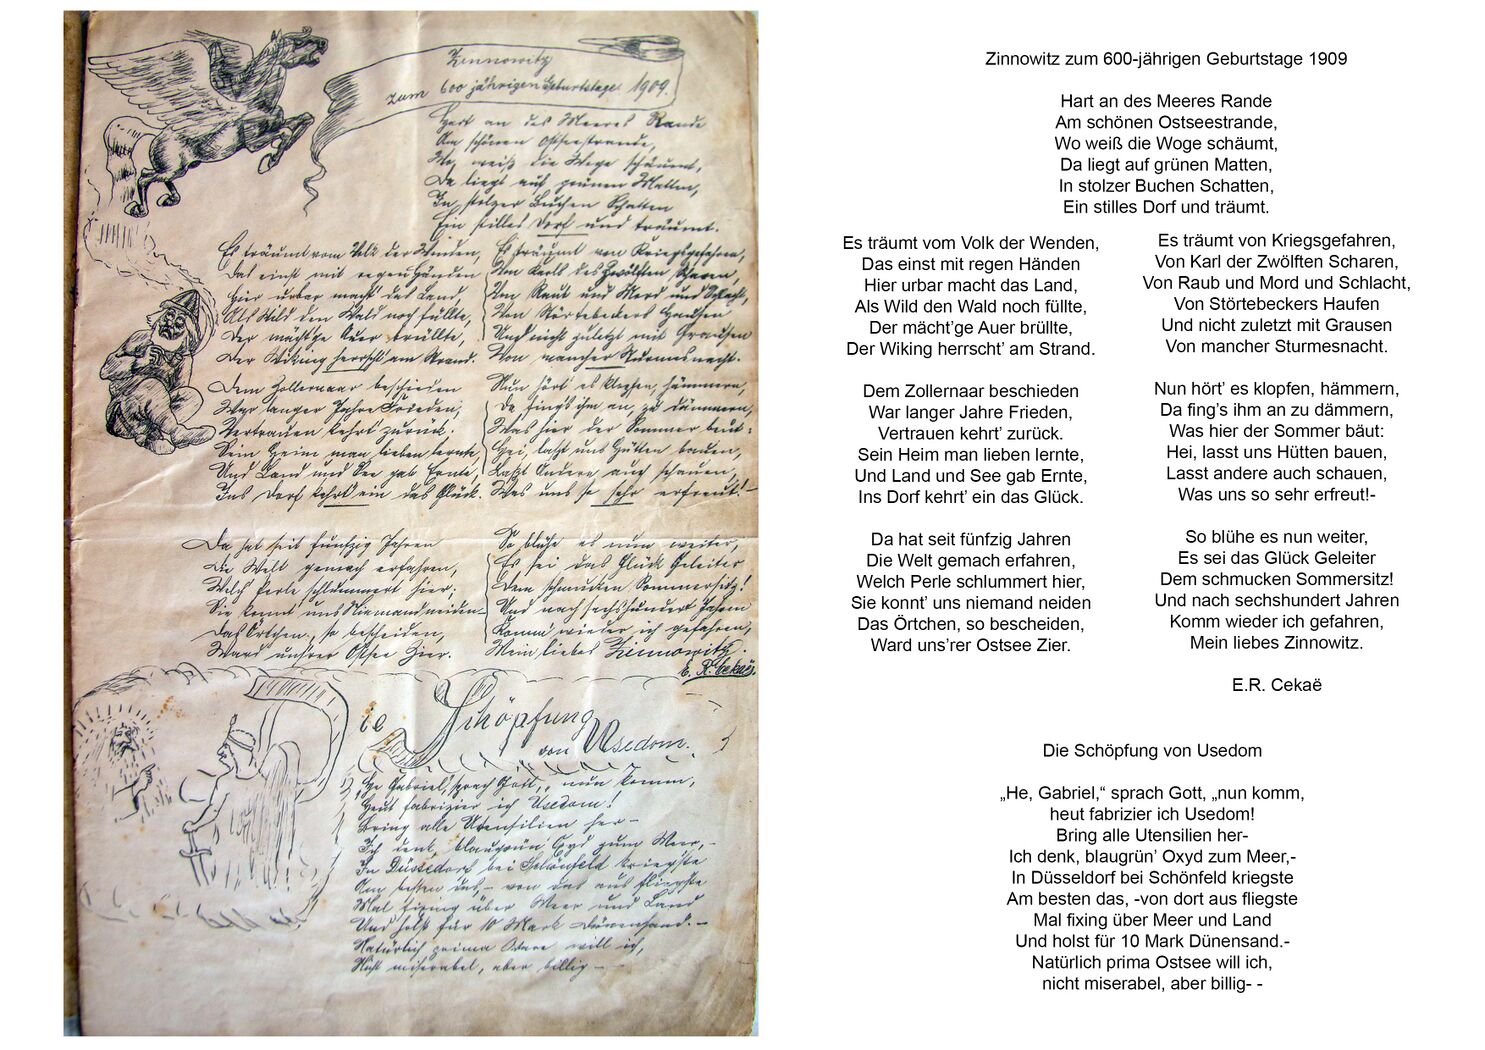 Zinnowitz
zum 600 jährigen Geburtstage 1909.
Hart an des Meeres Rande
Am schönen Ostseestrande,
Wo, weiß die Woge schäumt,
Da liegt auf grünen Matten,
In stolzer Buchen Schatten
Ein stilles Dorf und träumt.
Es träumt vom Volk der Wenden,
Das einst mit regen Händen
Hier urbar macht' das Land,
Als Wild den Wald noch füllte,
Der mächt'ge Auer brüllte,
Der Wiking herrscht' am Strand.
Dem Zollernaar beschieden
War langer Jahre Frieden,
Vertrauen kehrt' zurück.
Sein Heim man lieben lernte,
Und Land und See gab Ernte,
Ins Dorf kehrt' ein das Glück.
Da hat seit fünfzig Jahren
Die Welt gemach erfahren,
Welch Perle schlummert hier;
Sie konnt' uns Niemand neiden
Das Örtchen, so bescheiden,
Ward unsrer Ostsee Zier.
Es träumt von Kriegsgefahren,
Von Karls des Zwölften Scharen,
Von Raub und Mord und Schlacht,
Von Störtebeckers Haufen
Und nicht zuletzt mit Grausen
Von mancher Sturmesnacht.
Nun hört' es klopfen, hämmern,
Da fing's ihm an, zu dämmern,
Was hier der Sommer baut:
Hei, laßt uns Hütten bauen,
Laßt Andere auch schauen,
Was uns so sehr erfreut!-
So blühe es nun weiter,
Es sei das Glück Geleiter
Dem schmucken Sommersitz!
Und nach sechshundert Jahren
Komm' wieder ich gefahren,
Mein liebes Zinnowitz.
E. R. Cekaë.
Die Schöpfung
von Usedom.
„He Gabriel," sprach Gott, „nun komm,
Heut fabrizier ich Usedom!
Bring alle Utensilien her –
Ich denk, blaugrün' Oxyd zum Meer,–
In Düsseldorf bei Schönfeld kriegste
Am besten das, – von da aus fliegste
Mal fixing über Meer und Land
Und holst für 10 Mark Dünensand.–
Natürlich prima Ware will ich,
Nicht miserabel, aber billig – –
Zinnowitz zum 600-jährigen Geburtstage 1909
Hart an des Meeres Rande
Am schönen Ostseestrande,
Wo weiß die Woge schäumt,
Da liegt auf grünen Matten,
In stolzer Buchen Schatten,
Ein stilles Dorf und träumt.
Es träumt vom Volk der Wenden,
Das einst mit regen Händen
Hier urbar macht das Land,
Als Wild den Wald noch füllte,
Der mächt'ge Auer brüllte,
Der Wiking herrscht' am Strand.
Dem Zollernaar beschieden
War langer Jahre Frieden,
Vertrauen kehrt' zurück.
Sein Heim man lieben lernte,
Und Land und See gab Ernte,
Ins Dorf kehrt' ein das Glück.
Da hat seit fünfzig Jahren
Die Welt gemach erfahren,
Welch Perle schlummert hier,
Sie konnt' uns niemand neiden
Das Örtchen, so bescheiden,
Ward uns'rer Ostsee Zier.
Es träumt von Kriegsgefahren,
Von Karl der Zwölften Scharen,
Von Raub und Mord und Schlacht,
Von Störtebeckers Haufen
Und nicht zuletzt mit Grausen
Von mancher Sturmesnacht.
Nun hört' es klopfen, hämmern,
Da fing's ihm an zu dämmern,
Was hier der Sommer bäut:
Hei, lasst uns Hütten bauen,
Lasst andere auch schauen,
Was uns so sehr erfreut!-
So blühe es nun weiter,
Es sei das Glück Geleiter
Dem schmucken Sommersitz!
Und nach sechshundert Jahren
Komm wieder ich gefahren,
Mein liebes Zinnowitz.
E.R. Cekaë
Die Schöpfung von Usedom
„He, Gabriel,“ sprach Gott, „nun komm,
heut fabrizier ich Usedom!
Bring alle Utensilien her-
Ich denk, blaugrün' Oxyd zum Meer,-
In Düsseldorf bei Schönfeld kriegste
Am besten das, -von dort aus fliegste
Mal fixing über Meer und Land
Und holst für 10 Mark Dünensand.-
Natürlich prima Ostsee will ich,
nicht miserabel, aber billig- -